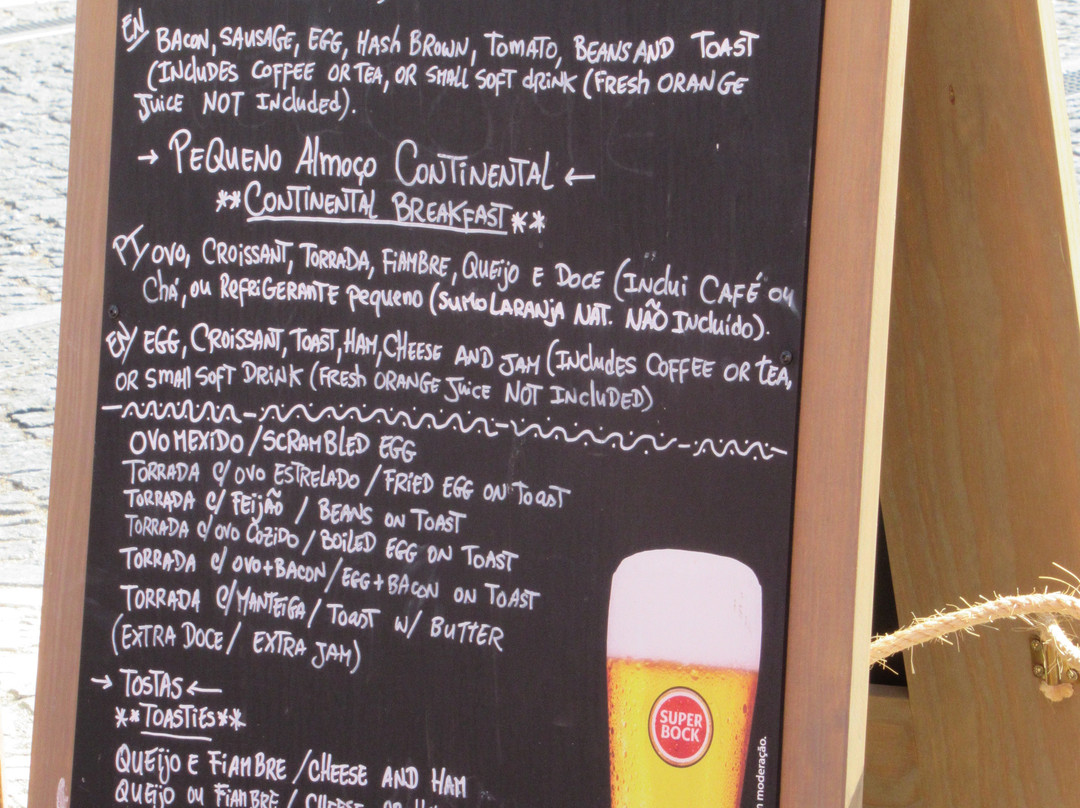 EN BACON, SAUSAGE, EGG, HASH BROWN, TOMATO, BEANS AND TOAST
(INCLUDES COFFEE OR TEA, OR SMALL SOFT DRINK (FRESH ORANGE
JUICE NOT INCLUDED).
→ PEQUENO ALMOÇO CONTINENTAL ←
**CONTINENTAL BREAKFAST**
PT/ OVO, CROISSANT, TORRADA, FIAMBRE, QUEIJO E DOCE (INCLUI CAFÉ OU
CHÁ, OU REFRIGERANTE PEQUENO (SUMO LARANJA NAT. NÃO INCLUÍDO).
EN/ EGG, CROISSANT, TOAST, HAM, CHEESE AND JAM (INCLUDES COFFEE OR TEA,
OR SMALL SOFT DRINK (FRESH ORANGE JUICE NOT INCLUDED)
OVO MEXIDO / SCRAMBLED EGG
TORRADA C/ OVO ESTRELADO / FRIED EGG ON TOAST
TORRADA C/ FEIJÃO / BEANS ON TOAST
TORRADA C/ OVO COZIDO / BOILED EGG ON TOAST
TORRADA C/ OVO+BACON / EGG+BACON ON TOAST
TORRADA C/ MANTEIGA / TOAST W/ BUTTER
(EXTRA DOCE / EXTRA JAM)
→ TOSTAS ←
**TOASTIES**
QUEIJO E FIAMBRE / CHEESE AND HAM
QUEIJO OU FIAMBRE / CHEESE OR
SUPER
BOCK
moderação.